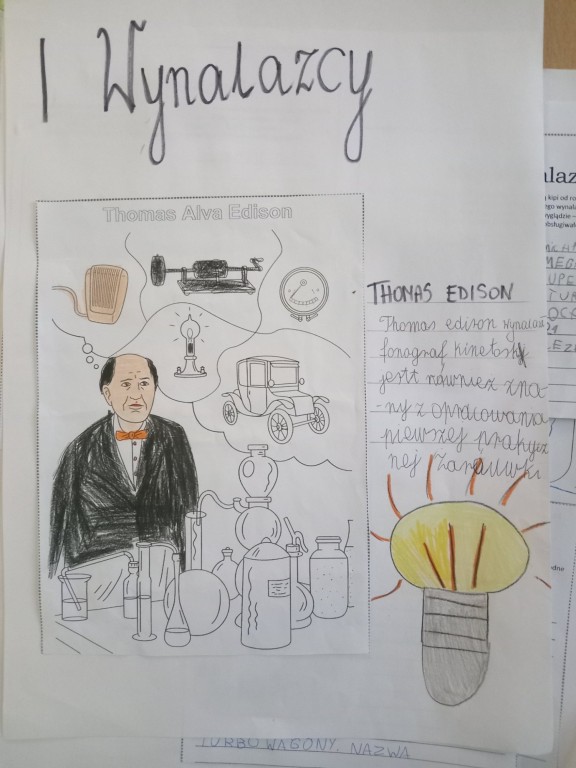 I Wynalazcy
Thomas Alva Edison
THOMAS EDISON
Thomas edison wynalazł
fonograf kinetosk
jestt również zna-
-ny z opracowania
pierwszej praktycz
nej żarówki
alaz
kipi od
ego wynala
wyglądzie –
obsługiwał
MEG
UPE
TUR
OCG
21
LEZ
dne
TURBO WAGONY. NAZWA